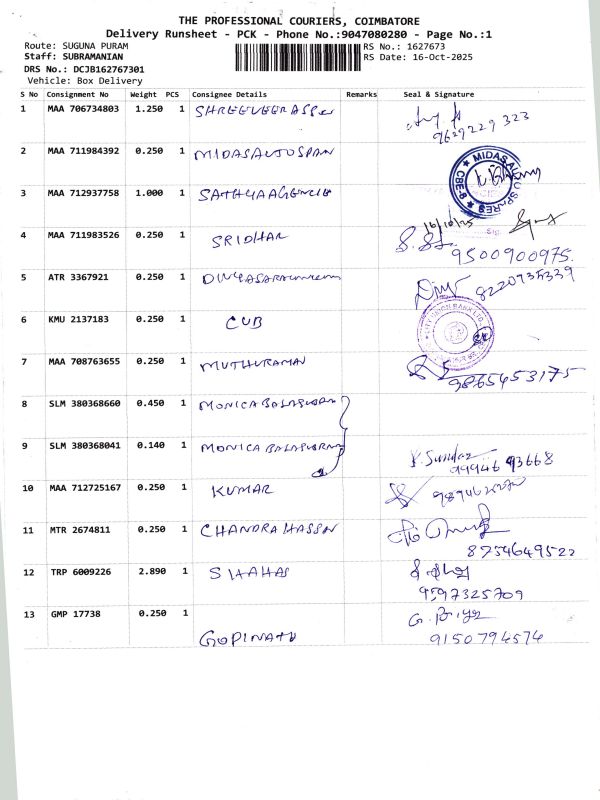 THE PROFESSIONAL COURIERS, COIMBATORE
Delivery Runsheet - PCK - Phone No.:9047080280 - Page No.:1
Route: SUGUNA PURAM
RS No.: 1627673
Staff: SUBRAMANIAN
RS Date: 16-Oct-2025
DRS No.: DCJB162767301
Vehicle: Box Delivery
S No Consignment No Weight PCS Consignee Details Remarks Seal & Signature
1 MAA 706734803 1.250 1
9629229 323
2 MAA 711984392 0.250 1 MIDASAUTOSPAN
MIDAS AUTO SPARES CBE-9
3 MAA 712937758 1.000 1 SATHYAAGENCIE
16/10/25
4 MAA 711983526 0.250 1 SRIDHAR
9500900975.
5 ATR 3367921 0.250 1
8220735339
6 KMU 2137183 0.250 1 CUB
CITY UNION BANK LTD.
7 MAA 708763655 0.250 1 MUTHURAMAN
9865453175
8 SLM 380368660 0.450 1 MONICA
9 SLM 380368041 0.140 1 MONICA
K. Sundar
99946 93668
10 MAA 712725167 0.250 1 KUMAR
11 MTR 2674811 0.250 1 CHANDRAHASSN
8754649522
12 TRP 6009226 2.890 1 SHAHAS
9597325709
13 GMP 17738 0.250 1 GOPINATH
G. Priya
9150794574